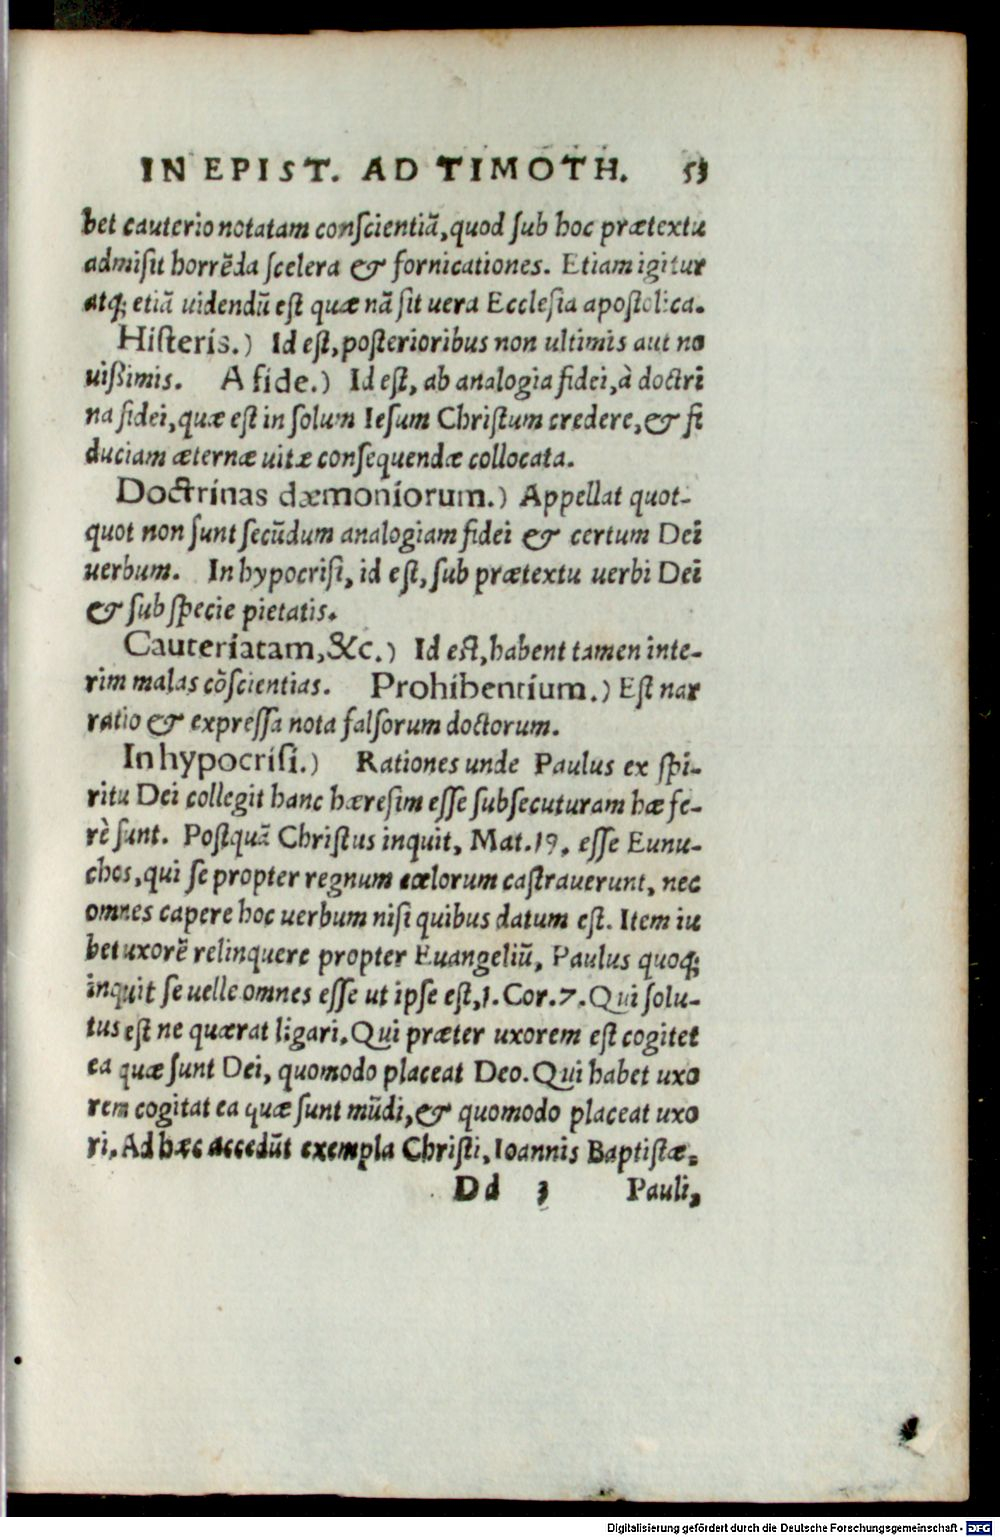 IN EPIST. AD TIMOTH. 53
bet cauterio notatam conſcientiã, quod ſub hoc prætextu
admiſit horrẽda ſcelera & fornicationes. Etiam igitur
atq; etiã uidendũ eſt quæ nã ſit uera Eccleſia apoſtolica.
Hiſteris.) Id eſt, poſterioribus non ultimis aut no
uiſſimis. A fide.) Id eſt, ab analogia fidei, à doctri
na fidei, quæ eſt in ſolum Ieſum Chriſtum credere, & fi
duciam æternæ uitæ conſequendæ collocata.
Doctrinas dæmoniorum.) Appellat quot-
quot non ſunt ſecũdum analogiam fidei & certum Dei
uerbum. In hypocriſi, id eſt, ſub prætextu uerbi Dei
& ſub ſpecie pietatis.
Cauteriatam, &c.) Id eſt, habent tamen inte-
rim malas cõſcientias. Prohibentium.) Eſt nar
ratio & expreſſa nota falſorum doctorum.
In hypocriſi.) Rationes unde Paulus ex ſpi-
ritu Dei collegit hanc hæreſim eſſe ſubſecuturam hæ fe-
rè ſunt. Poſtquã Chriſtus inquit, Mat. 19. eſſe Eunu-
chos, qui ſe propter regnum cœlorum caſtrauerunt, nec
omnes capere hoc uerbum niſi quibus datum eſt. Item iu
bet uxorẽ relinquere propter Euangeliũ, Paulus quoq;
inquit ſe uelle omnes eſſe ut ipſe eſt, 1. Cor. 7. Qui ſolu-
tus eſt ne quærat ligari. Qui præter uxorem eſt cogitet
ea quæ ſunt Dei, quomodo placeat Deo. Qui habet uxo
rem cogitat ea quæ ſunt mũdi, & quomodo placeat uxo
ri. Ad hæc accedũt exempla Chriſti, Ioannis Baptiſtæ,
Dd 3 Pauli,
Digitalisierung gefördert durch die Deutsche Forschungsgemeinschaft - DFG